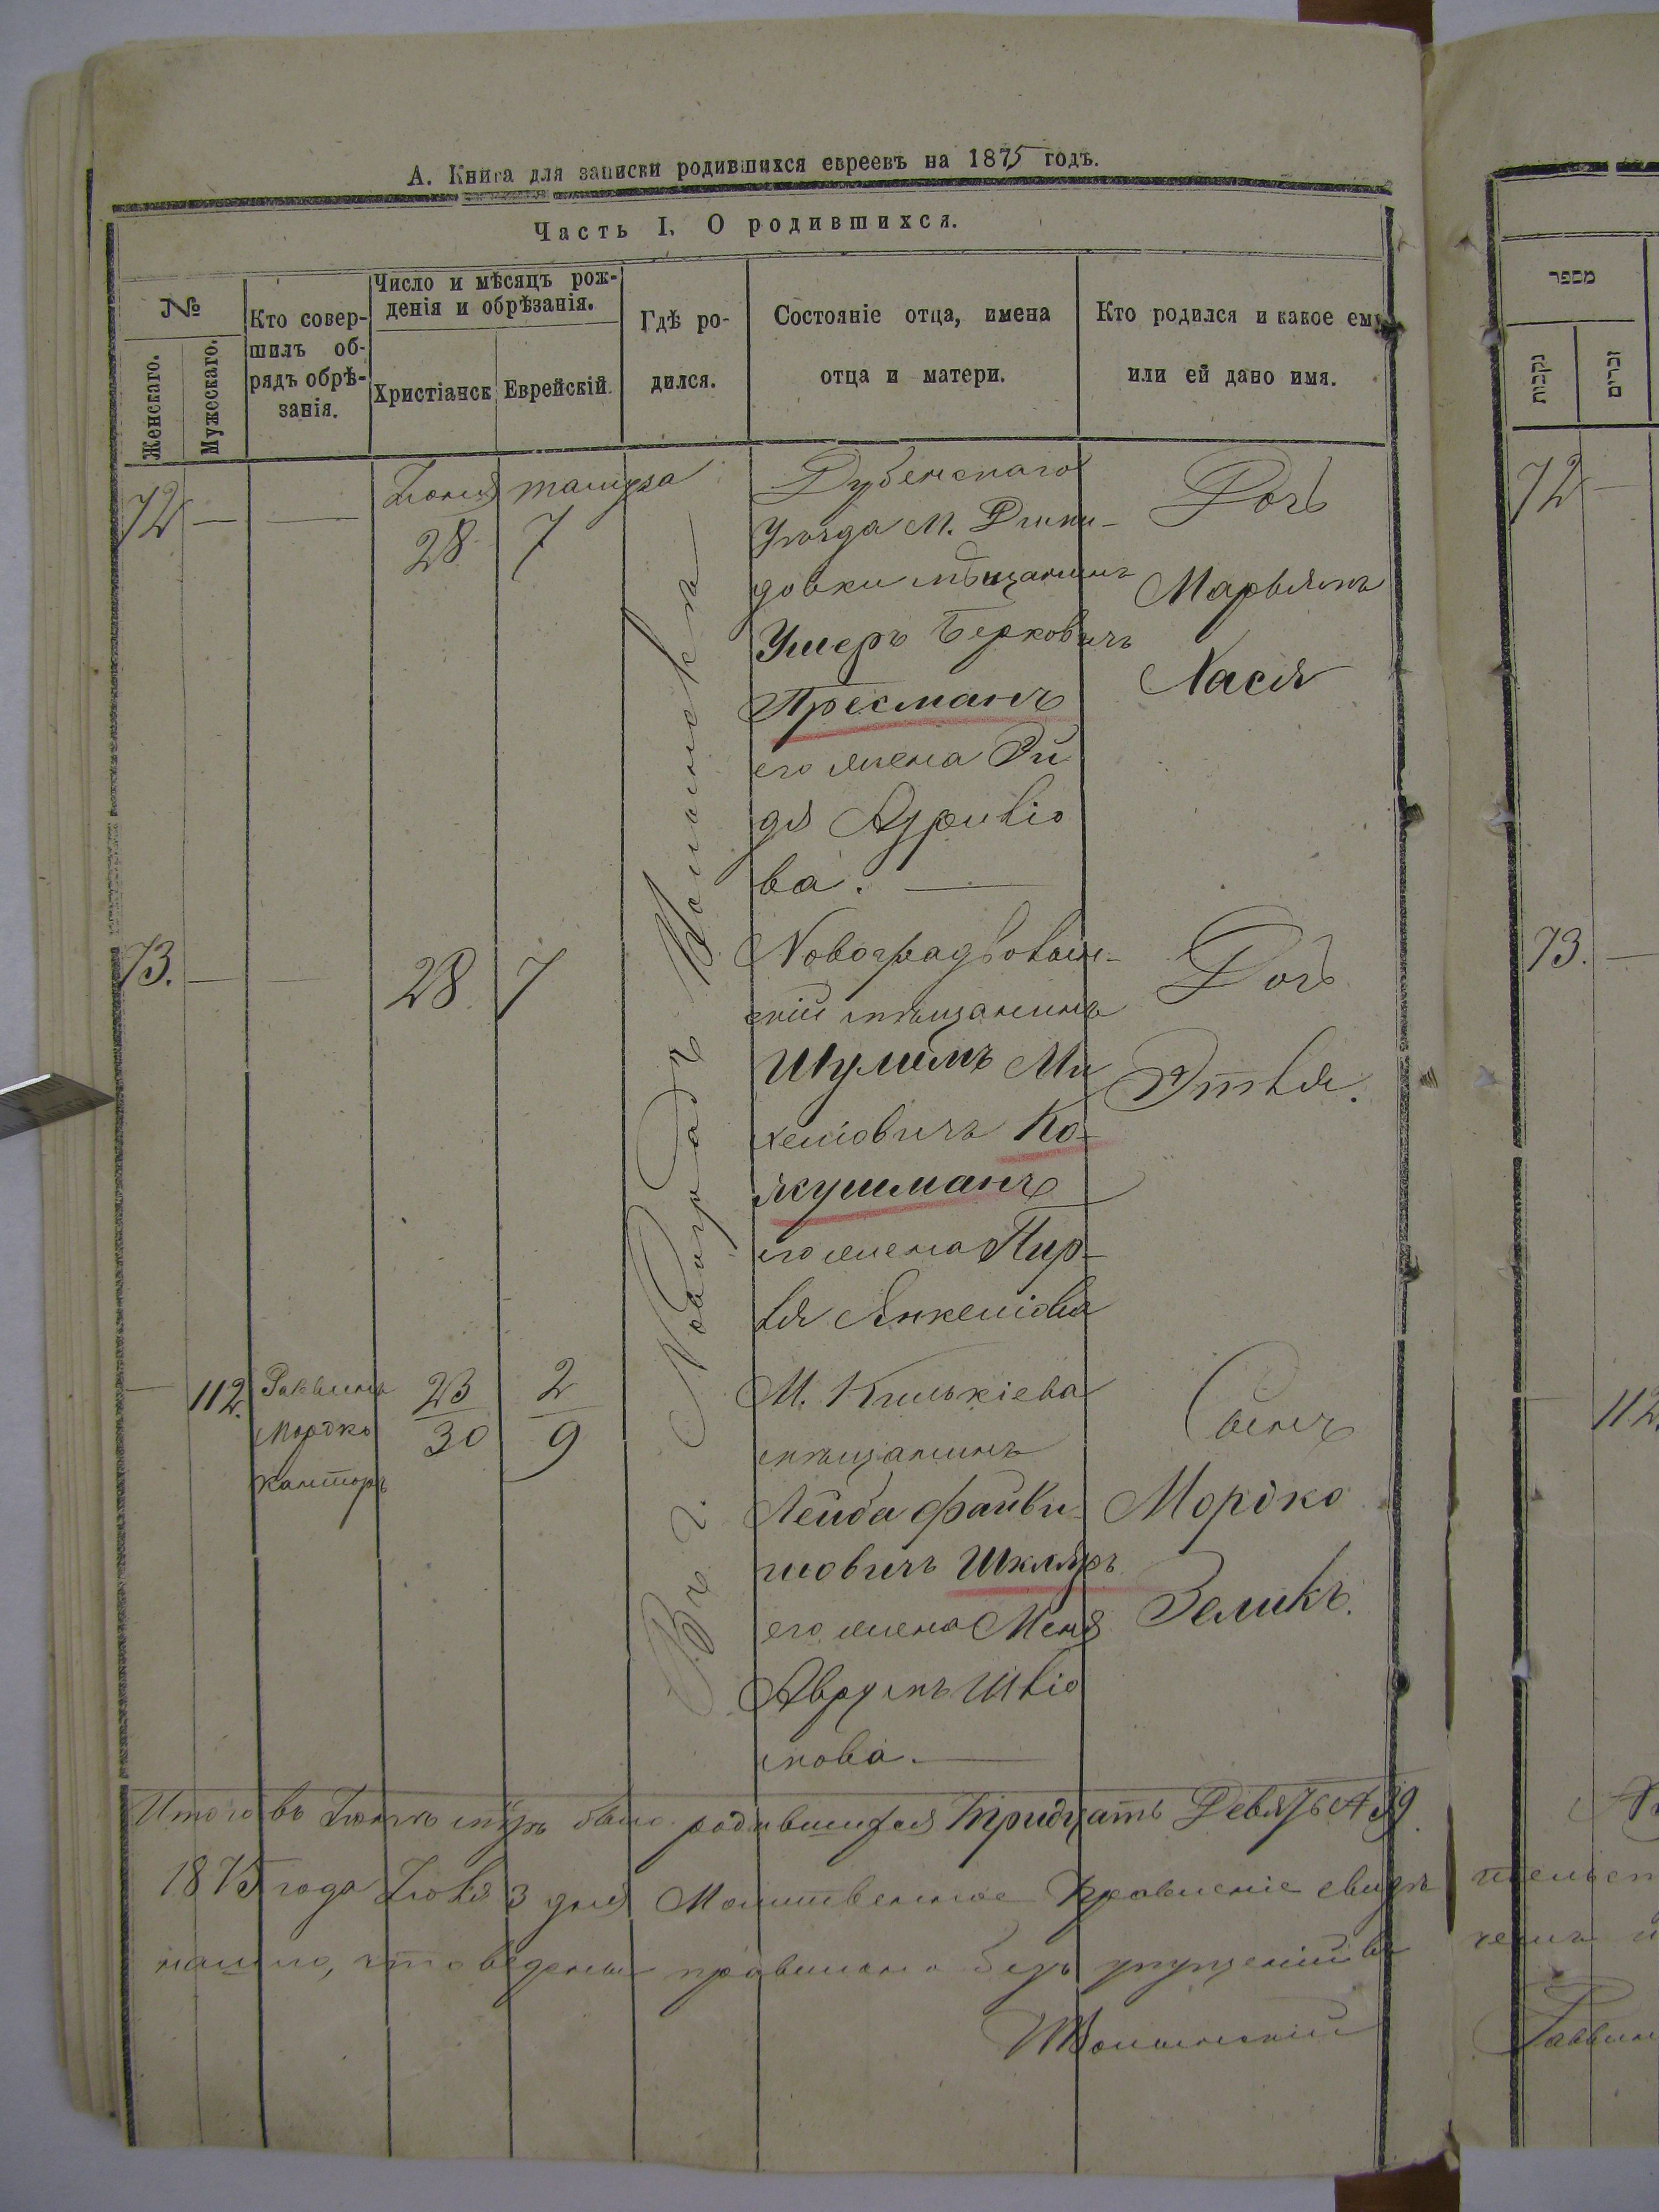 А. Книга для записки родившихся евреевъ на 1875 годъ.
Часть I. О родившихся.
№
Женскаго.
Мужескаго.
Кто совер-
шилъ об-
рядъ обрѣ-
занія.
Число и мѣсяцъ рож-
денія и обрѣзанія.
Христіанск
Еврейскій.
Гдѣ ро-
дился.
Состояніе отца, имена
отца и матери.
Кто родился и какое ему
или ей дано имя.
Въ г. Новоградъ Волынскѣ
72 — — Іюня 28 тамуза 7
Дубенскаго
Уѣзда М.
довки мѣщанинъ
Умеръ Берковичъ
Пресманъ
его жена Эй
дя
ва. —
Дочь
Марьямъ
Хася
73. — — 28 7
Новоградволын-
скій мѣщанинъ
Шулимъ Ми
хелювичъ Ко-
якушманъ
его жена Пир-
ля Янкелюва
Дочь
Этля.
— 112. Раввинъ
Мордко
Канторъ
23
30
2
9
М. Килькіева
мѣщанинъ
Лейба Файви-
шовичъ Шкляръ
его жена Меня
Аврумъ Шлiо
мова. —
Сынъ
Мордко
Зеликъ.
Итого въ Іюнѣ было родившихся Тридцать Девять 39.
1875 года Іюля 3 дня Молитвенное Правленіе свидѣ
нашло, что ведены правильно безъ упущеній
מספר
נקבות
זכרים
72 —
73. —
112.